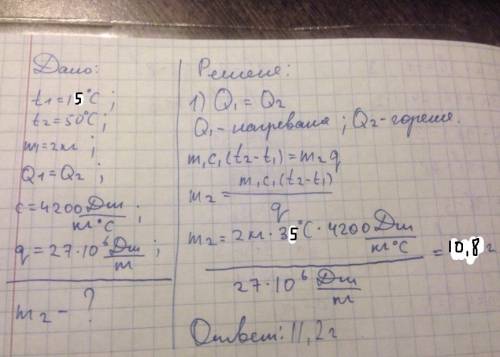 Дано:
t1=15°C;
t2=50°C;
m1=2кг;
Q1=Q2;
c=4200 Дж/кг°C;
q=27·10⁶ Дж/кг;
m2-?
Решение:
1) Q1=Q2
Q1-нагревание; Q2-горение.
m1c1(t2-t1)=m2q
m2= m1c1(t2-t1)/q
m2=2кг·35°C·4200 Дж/кг°C / 27·10⁶ Дж/кг = 10,8г
Ответ: 11,2г